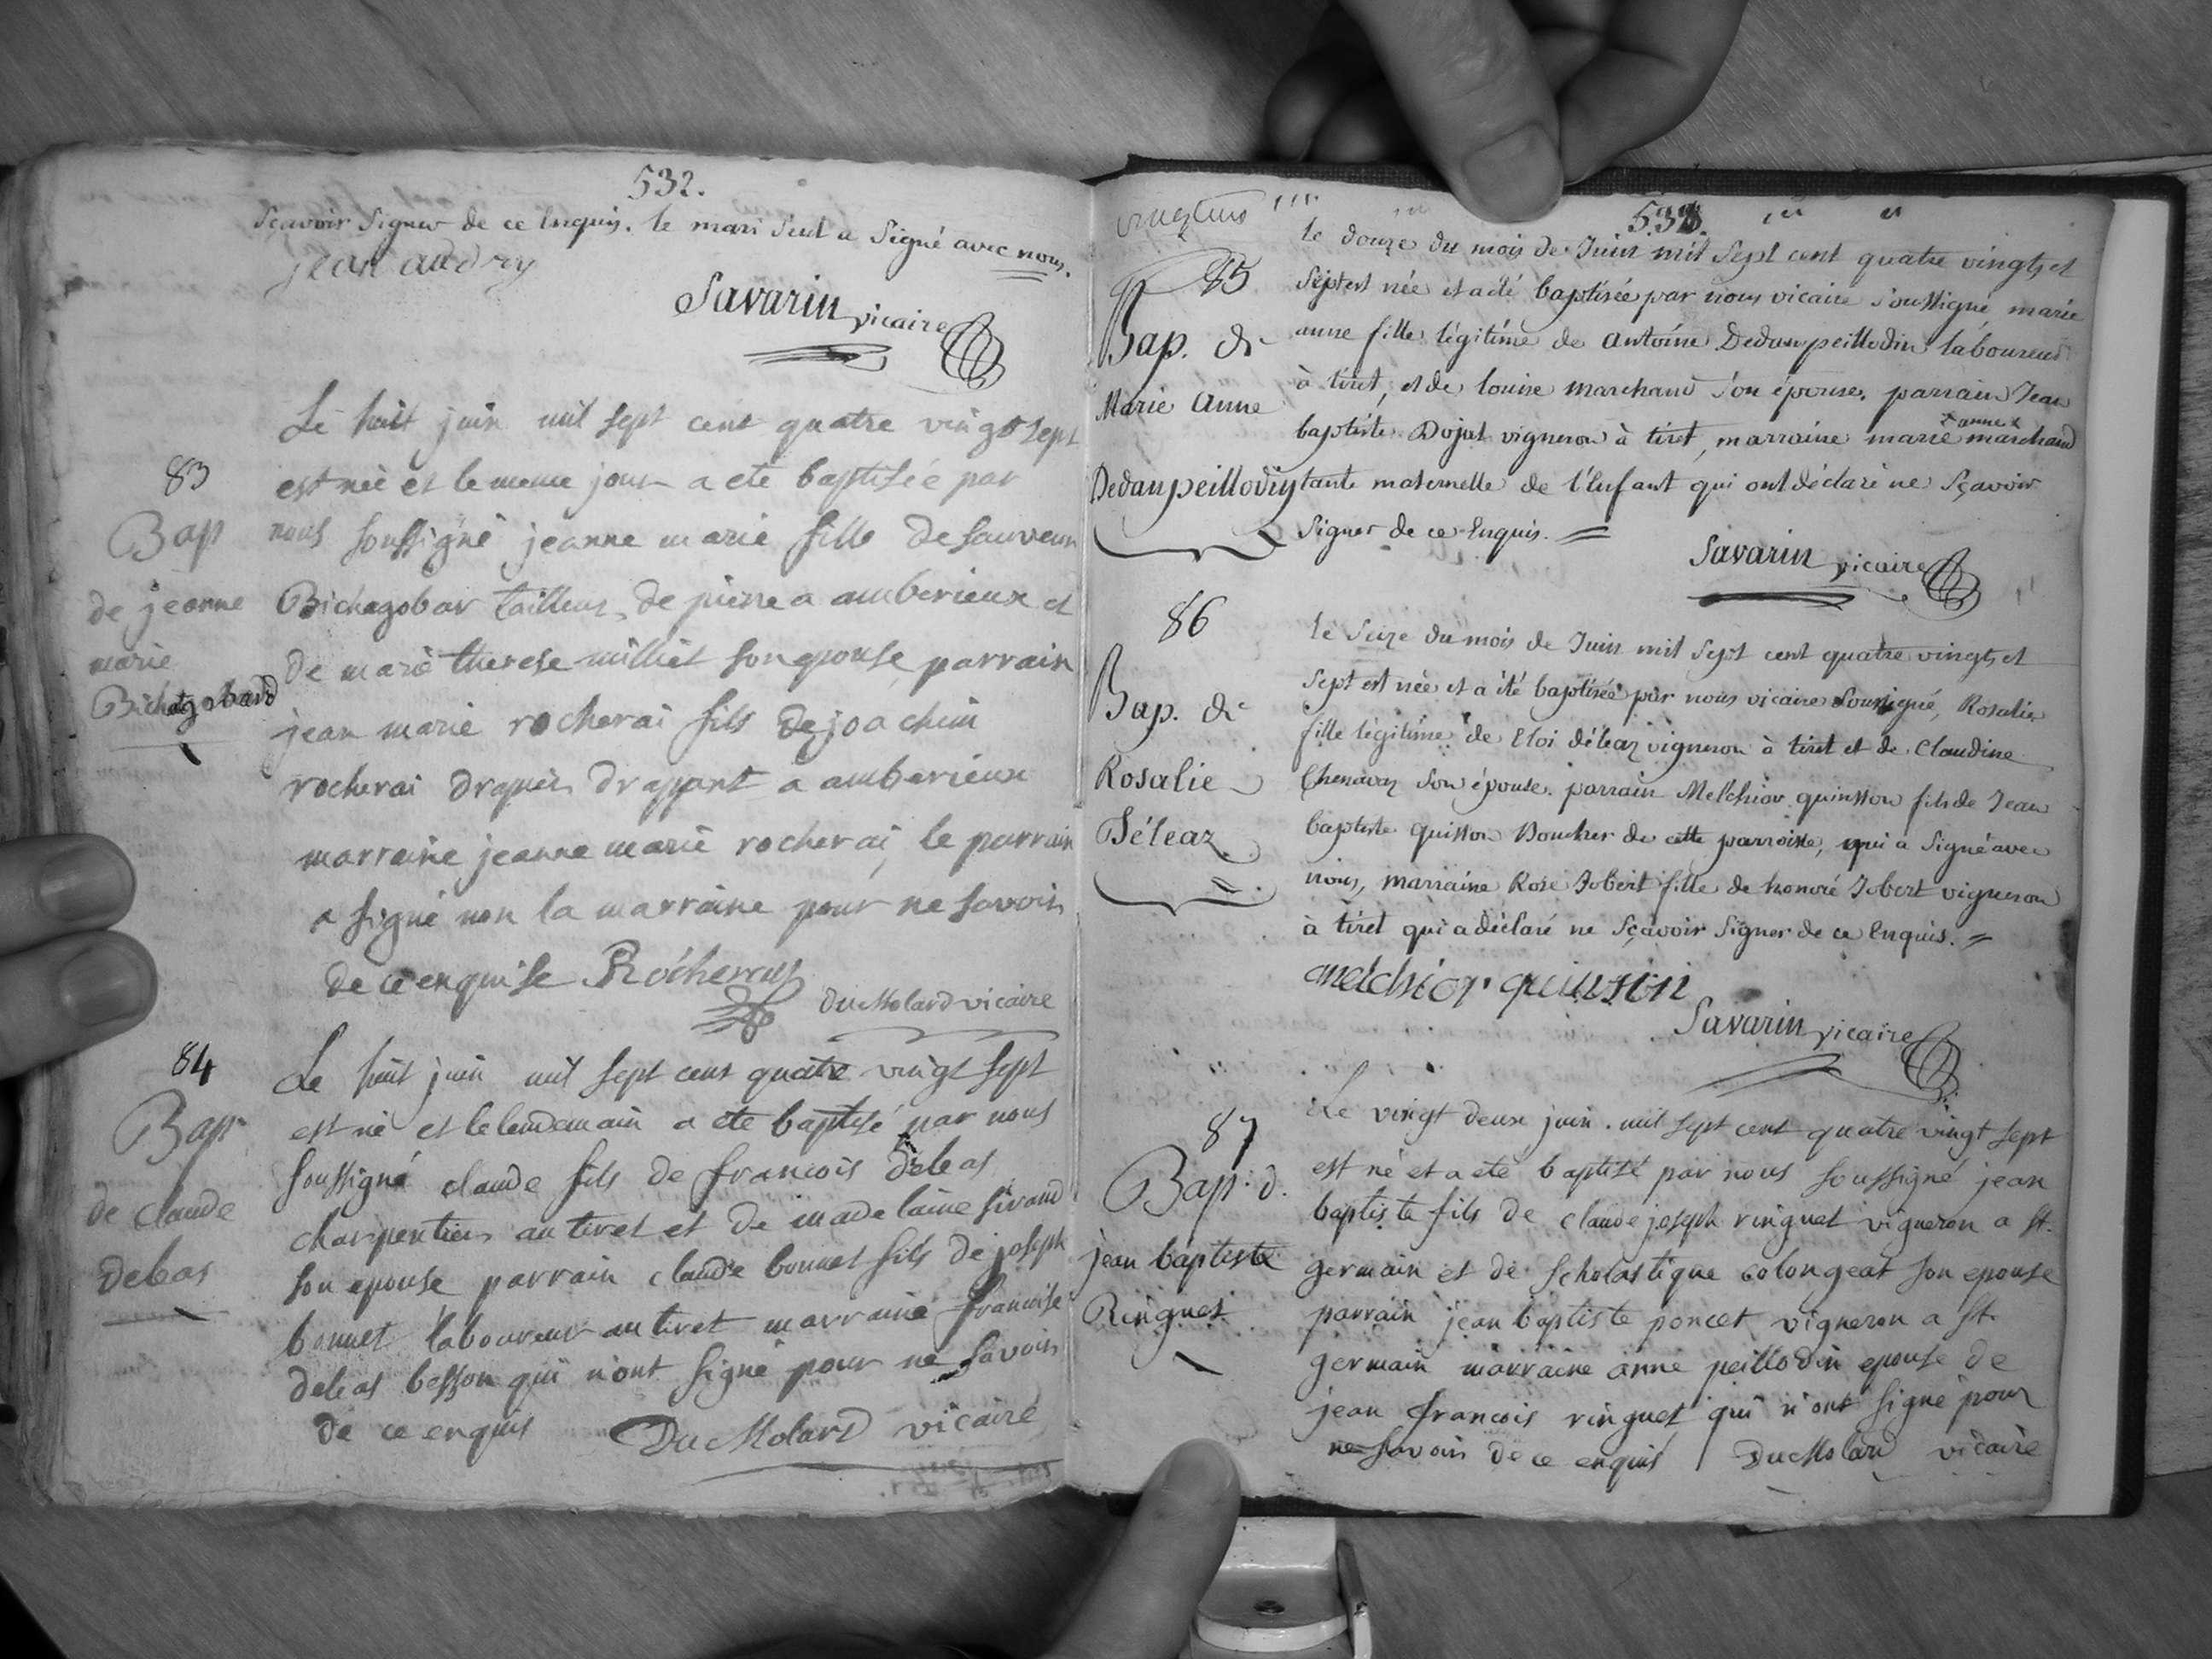 532.
Sçavoir Signer de ce Enquis. le mari Seul a Signé avec nous.
jean audry
Savarin vicaire
83
Bap
de jeanne
marie
Bichagobard
Le huit juin mil sept cent quatre vingt sept
est née et le meme jour a ete baptisée par
nous soussigné jeanne marie fille de sauveur
Bichagobar tailleur de pierre a amberieux et
de marie therese milliet son epouse parrain
jean marie rocherai fils de joachim
rocherai drapier drappant a amberieux
marraine jeanne marie rocherai, le parrain
a signé non la marraine pour ne savoir
de ce enquise Rocherray
duMolard vicaire
84
Bap
de claude
debas
Le huit juin mil sept cent quatre vingt sept
est né et le lendemain a ete baptisé par nous
soussigné claude fils de francois debas
charpentier au tiret et de madelaine sirand
son epouse parrain claude bonnet fils de joseph
bonnet laboureur au tiret marraine francoise
debas besson qui n'ont signé pour ne savoir
de ce enquis DuMolard vicaire
538.
85
Bap. de
Marie Anne
Dedaupeillodin
le douze du mois de Juin mil Sept cent quatre vingts et
Sept est née et a été baptisée par nous vicaire Soussigné marie
anne fille légitime de antoine Dedaupeillodin laboureur
à tiret, et de louise marchand Son épouse. parrain Jean
baptiste Dojat vigneron à tiret, marraine marie anne marchand
tante maternelle de l'Enfant qui ont déclaré ne Sçavoir
Signer de ce Enquis. =
Savarin vicaire
86
Bap. de
Rosalie
Déleaz
le Seize du mois de Juin mil Sept cent quatre vingts et
Sept est née et a été baptisée par nous vicaire Soussigné, Rosalie
fille légitime de Eloi déleaz vigneron à tiret et de Claudine
Chenavaz Son épouse. parrain Melchior quinsson fils de Jean
baptiste quisson Boucher de cette parroisse, qui a Signé avec
nous, marraine Rose Jobert fille de honoré Jobert vigneron
à tiret qui a déclaré ne Sçavoir Signer de ce Enquis. =
melchior quinson
Savarin vicaire
87
Bap. d.
jean baptiste
Ringuet
Le vingt deux juin mil sept cent quatre vingt sept
est né et a ete baptisé par nous soussigné jean
baptiste fils de claude joseph ringuet vigneron a st.
germain et de scholastique colongeat son epouse
parrain jean baptiste poncet vigneron a st.
germain marraine anne peillodin epouse de
jean francois ringuet qui n'ont signé pour
ne savoir de ce enquis DuMolard vicaire